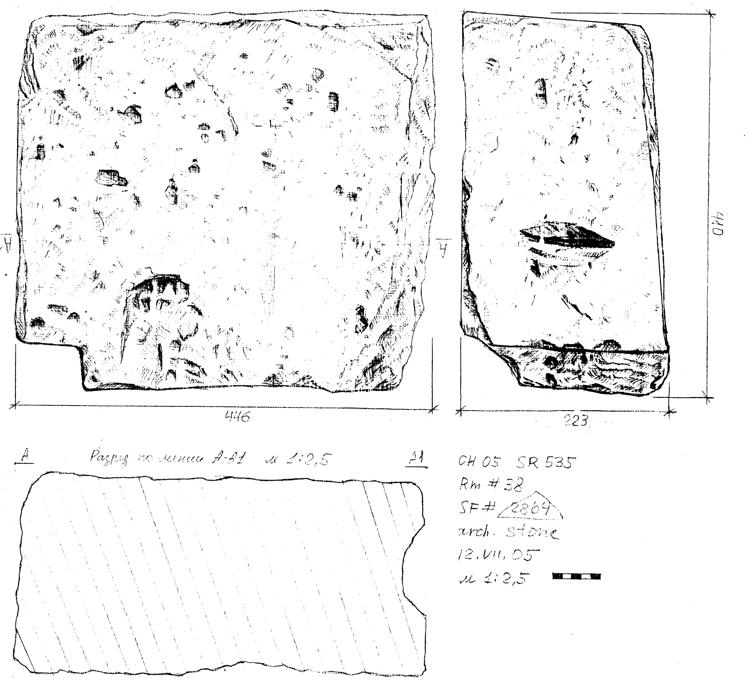 A
A
410
446
223
A
Разрез по линии А-А1 м 1:2,5
А1
CH 05 SR 535
Rm # 38
SF # 2864
arch. stone
12.VII.05
м 1:2,5